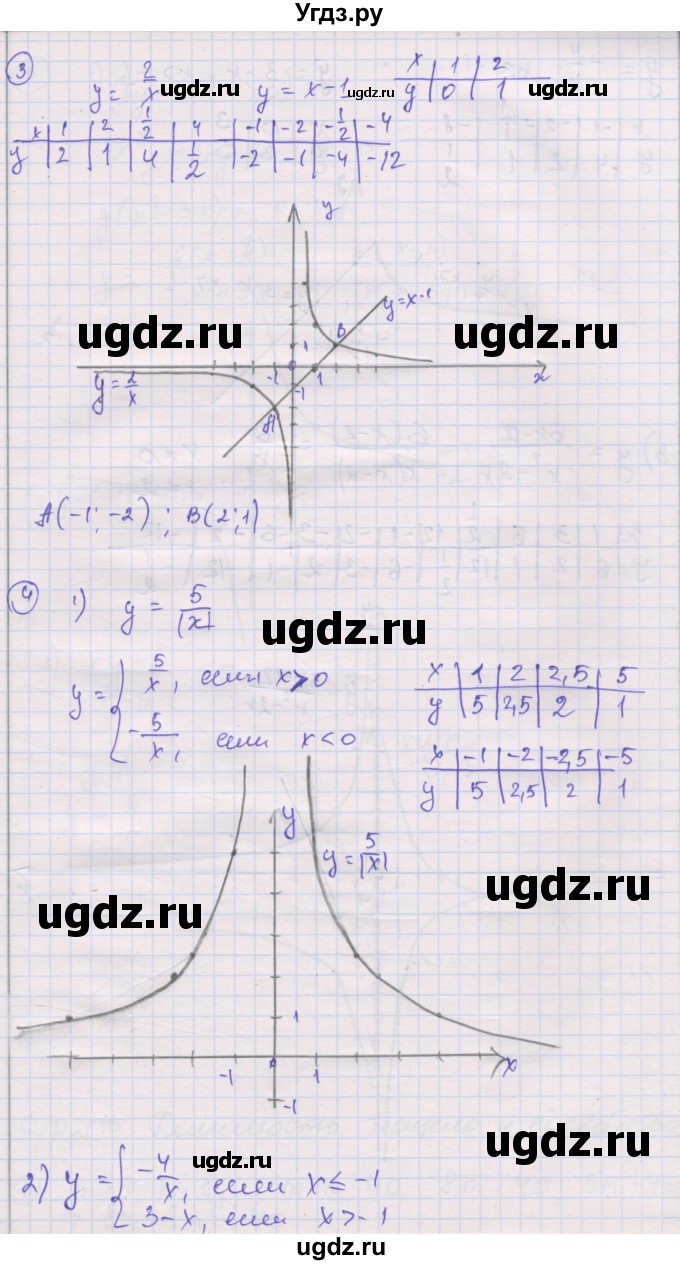 Угдз.ру
3
y = 2/x y = x-1
x | 1 | 2
y | 0 | 1
x | 1 | 2 | 1/2 | 4 | -1 | -2 | -1/2 | -4
y | 2 | 1 | 4 | 1/2 | -2 | -1 | -4 | -12
ugdz.ru ugdz.ru ugdz.ru
y
y=x-1
B
ugdz.ru ugdz.ru
1
-1 0 1 x
-1
y=2/x
A
A(-1; -2) ; B(2; 1)
4 1) y = 5/|x|
ugdz.ru
y = { 5/x, если x>0
-5/x, если x<0
x | 1 | 2 | 2,5 | 5
y | 5 | 2,5 | 2 | 1
x | -1 | -2 | -2,5 | -5
y | 5 | 2,5 | 2 | 1
y
y = 5/|x|
ugdz.ru ugdz.ru
1
-1 0 1 x
-1
ugdz.ru ugdz.ru
2) y = { -4/x, если x ≤ -1
3-x, если x > -1
ugdz.ru